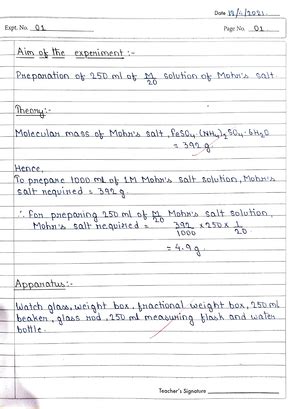 Date 18/4/2021.
Expt. No. 01
Page No. 01
Aim of the experiment :-
Preparation of 250 ml of M/20 solution of Mohr's salt
Theory:-
Molecular mass of Mohr's salt, FeSO4.(NH4)2SO4.6H2O
= 392 g
Hence,
To prepare 1000 ml of 1M Mohr's salt solution, Mohr's
salt required = 392 g.
∴ For preparing 250 ml of M/20 Mohr's salt solution,
Mohr's salt required = 392/1000 × 250 × 1/20
= 4.9 g.
Apparatus:-
Watch glass, weight box, fractional weight box, 250 ml
beaker, glass rod, 250 ml measuring flask and water
bottle.
Teacher's Signature